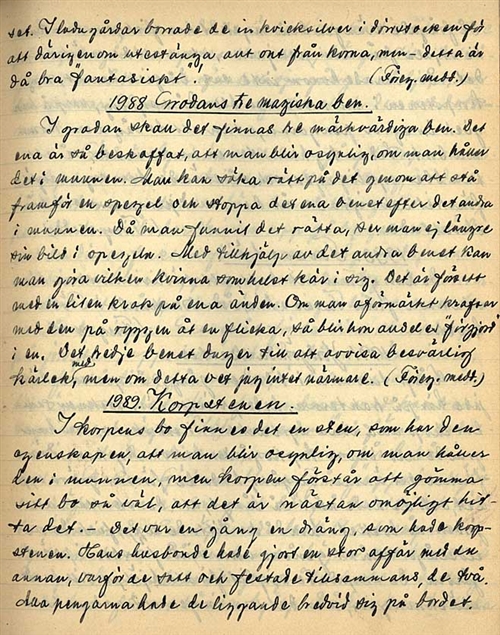 set. I ladugårdar borrade de in kvicksilver i dörrstocken för
att därigenom utestänga allt ont från korna, men – detta är
då bra "fantasiskt". (Föreg. medd.)
1988 Grodans tre magiska ben.
I grodan skall det finnas tre märkvärdiga ben. Det
ena är så beskaffat, att man blir osynlig, om man håller
det i munnen. Man kan söka rätt på det genom att stå
framför en spegel och stoppa det ena benet efter det andra
i munnen. Då man funnit det rätta, ser man ej längre
sin bild i spegeln. Med tillhjälp av det andra benet kan
man göra vilken kvinna somhelst kär i sig. Det är försett
med en liten krok på ena änden. Om man oförmärkt krafsar
med den på ryggen åt en flicka, så blir hon alldeles "förgjord"
i en. Det tredje benet duger till att avvisa besvärlig
kärlek med, men om detta vet jag intet närmare. (Föreg. medd.)
1989. Korpstenen.
I korpens bo finnes det en sten, som har den
egenskapen, att man blir osynlig, om man håller
den i munnen, men korpen förstår att gömma
sitt bo så väl, att det är nästan omöjligt hit-
ta det. – Det var en gång en dräng, som hade korp-
stenen. Hans husbonde hade gjort en stor affär med en
annan, varför de satt och festade tillsammans, de två.
Alla pengarna hade de liggande bredvid sig på bordet.